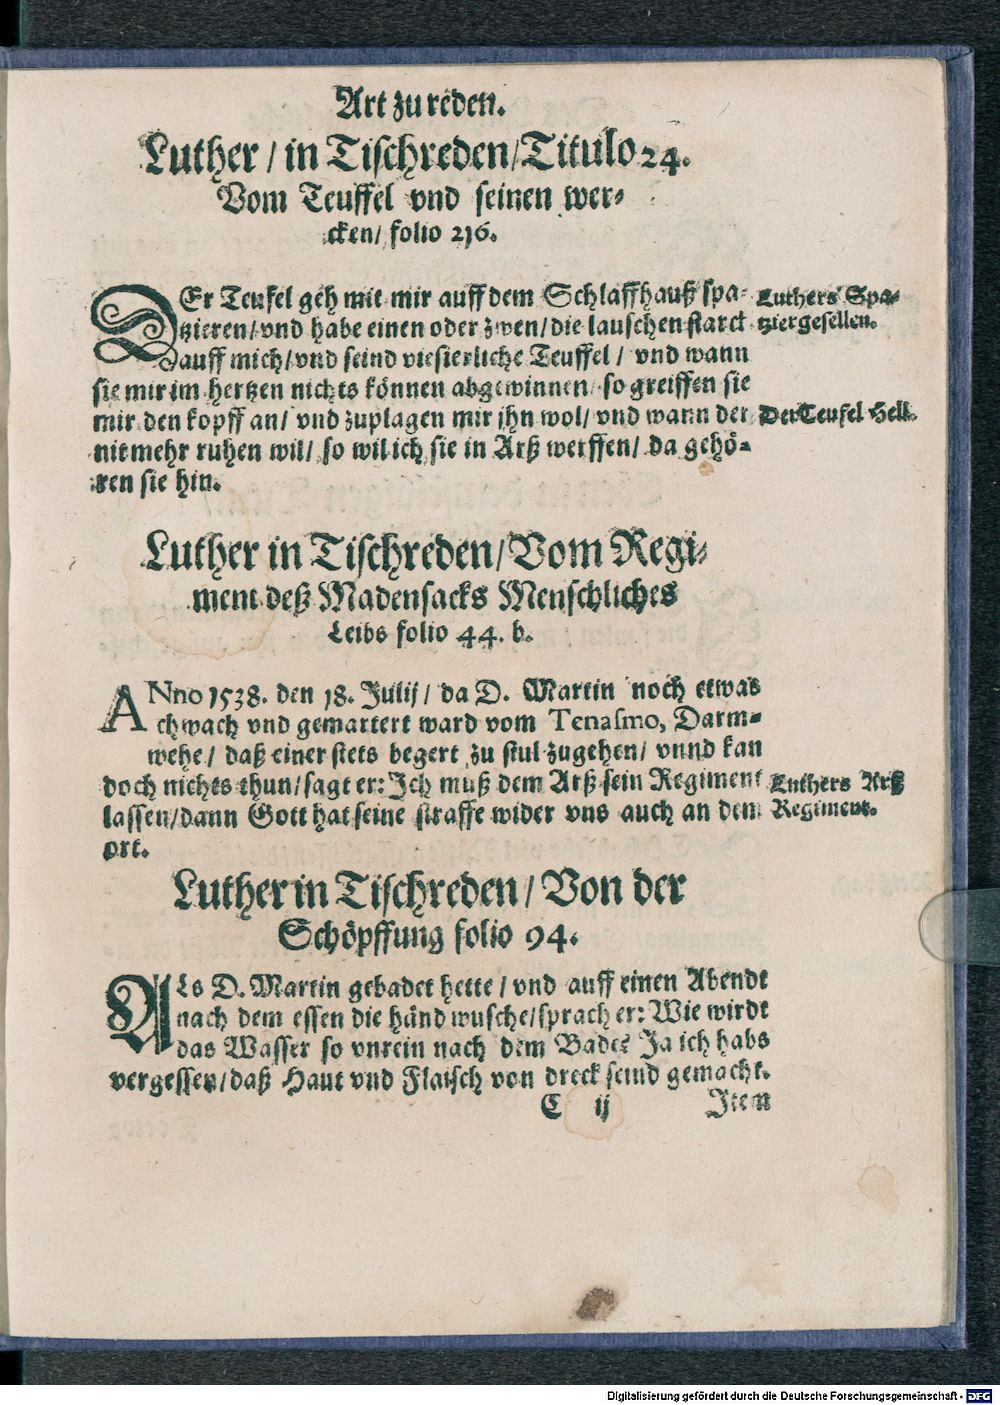 Art zu reden.
Luther / in Tischreden/Titulo 24.
Vom Teuffel vnd seinen wer-
cken/ folio 216.
DEr Teufel geh mit mir auff dem Schlaffhauß spa-
tzieren/vnd habe einen oder zwen/die lauschen starck
auff mich/vnd seind viesierliche Teuffel / vnd wann
sie mir im hertzen nichts können abgewinnen/ so greiffen sie
mir den kopff an/ vnd zuplagen mir ihn wol/ vnd wann der
nit mehr ruhen wil/ so wil ich sie in Arß werffen/ da gehö-
ren sie hin.
Luthers Spa-
tziergesellen.
Der Teufel Hell.
Luther in Tischreden/Vom Regi-
ment deß Madensacks Menschliches
Leibs folio 44. b.
ANno 1538. den 18. Julij/ da D. Martin noch etwas
chwach vnd gemartert ward vom Tenasmo, Darm-
wehe/ daß einer stets begert zu stul zugehen/ vnnd kan
doch nichts thun/sagt er: Ich muß dem Arß sein Regiment
lassen/dann Gott hat seine straffe wider vns auch an dem
ort.
Luthers Arß
Regiment.
Luther in Tischreden / Von der
Schöpffung folio 94.
ALs D. Martin gebadet hette / vnd auff einen Abendt
nach dem essen die händ wusche/sprach er: Wie wirdt
das Wasser so vnrein nach dem Bade? Ja ich habs
vergessen/daß Haut vnd Flaisch von dreck seind gemacht.
C ij Item
Digitalisierung gefördert durch die Deutsche Forschungsgemeinschaft - DFG